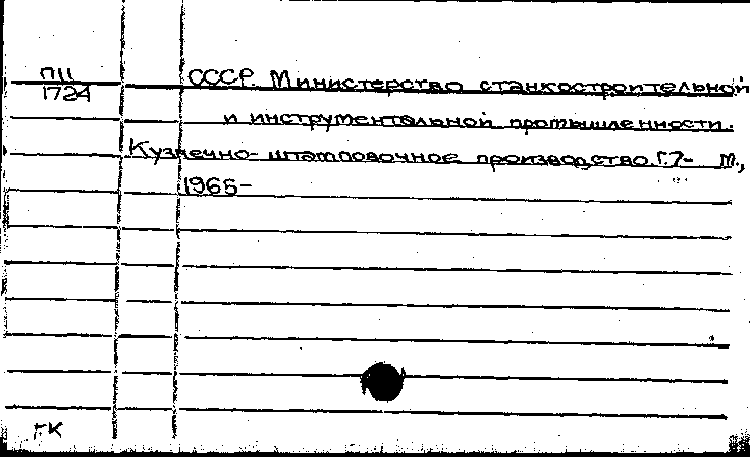 П11
1724
СССР. Министерство станкостроительной
и инструментальной промышленности.
Кузнечно-штамповочное производство. Г.7- М.,
1965-
ГК